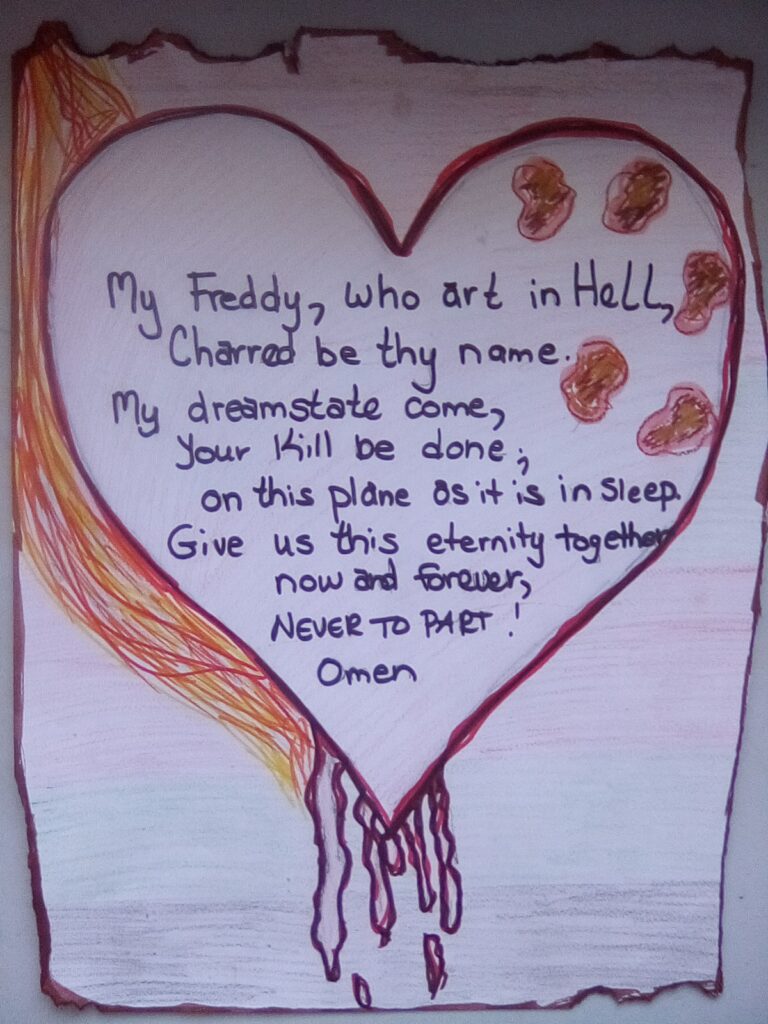 My Freddy, who art in Hell,
Charred be thy name.
My dreamstate come,
Your Kill be done;
on this plane as it is in sleep.
Give us this eternity together
now and forever,
NEVER TO PART!
Omen